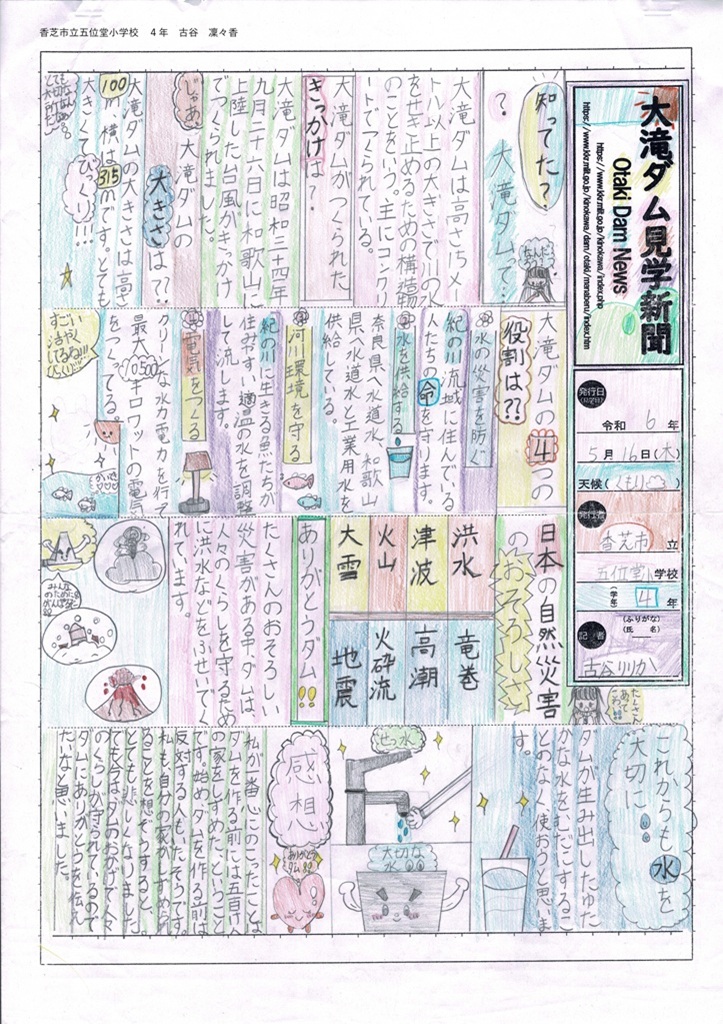 香芝市立五位堂小学校　4年　古谷　凜々香
大滝ダム見学新聞
Otaki Dam News
https://www.kkr.mlit.go.jp/kinokawa/index.php
https://www.kkr.mlit.go.jp/kinokawa/dam/otaki/manaberu/index.htm
発行日
令和 6 年
5月16日(木)
天候(くもり)
発行者
香芝市 立
五位堂小学校
(学年) 4 年
記者
(ふりがな)
(氏 名)
古谷りりか
知ってた?
大滝ダムって…
?
なんだ
大滝ダムは高さ15メー
トル以上の大きさで川の水
をせき止めるための構造物
のことをいう。主にコンクリ
ートでつくられている。
大滝ダムがつくられた
きっかけは?
大滝ダムは昭和三十四年
九月二十六日に和歌山に
上陸した台風がきっかけ
でつくられました。
じゃあ、
大滝ダムの
大きさは??
大滝ダムの大きさは高さ
100m、横は315mです。とても
大きくてびっくり!!!
大滝ダムの4つの
役割は??
水の災害を防ぐ
紀の川流域に住んでいる
人たちの命を守ります。
水を供給する
奈良県へ水道水、和歌山
県へ水道水と工業用水を
供給している。
河川環境を守る
紀の川に生きる魚たちが
住みやすい適温の水を調整
して流します。
電気をつくる
クリーンな水力電力を行って
最大10500キロワットの電気
をつくってる。
すごい
活やく
してるね!!!
びっくり!!
日本の自然災害
のおそろしさ
洪水
津波
火山
大雪
竜巻
高潮
火砕流
地震
たくさん
あって
こわい
ありがとうダム!!
たくさんのおそろしい
災害がある中、ダムは、
人々のくらしを守るため
に洪水などをふせいでく
れています。
みんな
のために
がんばる
これからも水を
大切に
ダムが生み出したゆた
かな水をむだにするこ
とのなく、使おうと思いま
す。
せっ水
大切な
水
感想
ありがとう
ダム
私が一番心にのこったことは
ダムを作る前には五百けん
の家をしずめた、ということ
です。始め、ダムを作る前は
反対する人もいたそうです。
私も自分の家がしずめられ
ることを想ぞうすると、
とても悲しくなりました。
でも今は、ダムのおかげで人々
のくらしが守られているので
ダムにありがとうを伝え
たいなと思いました。